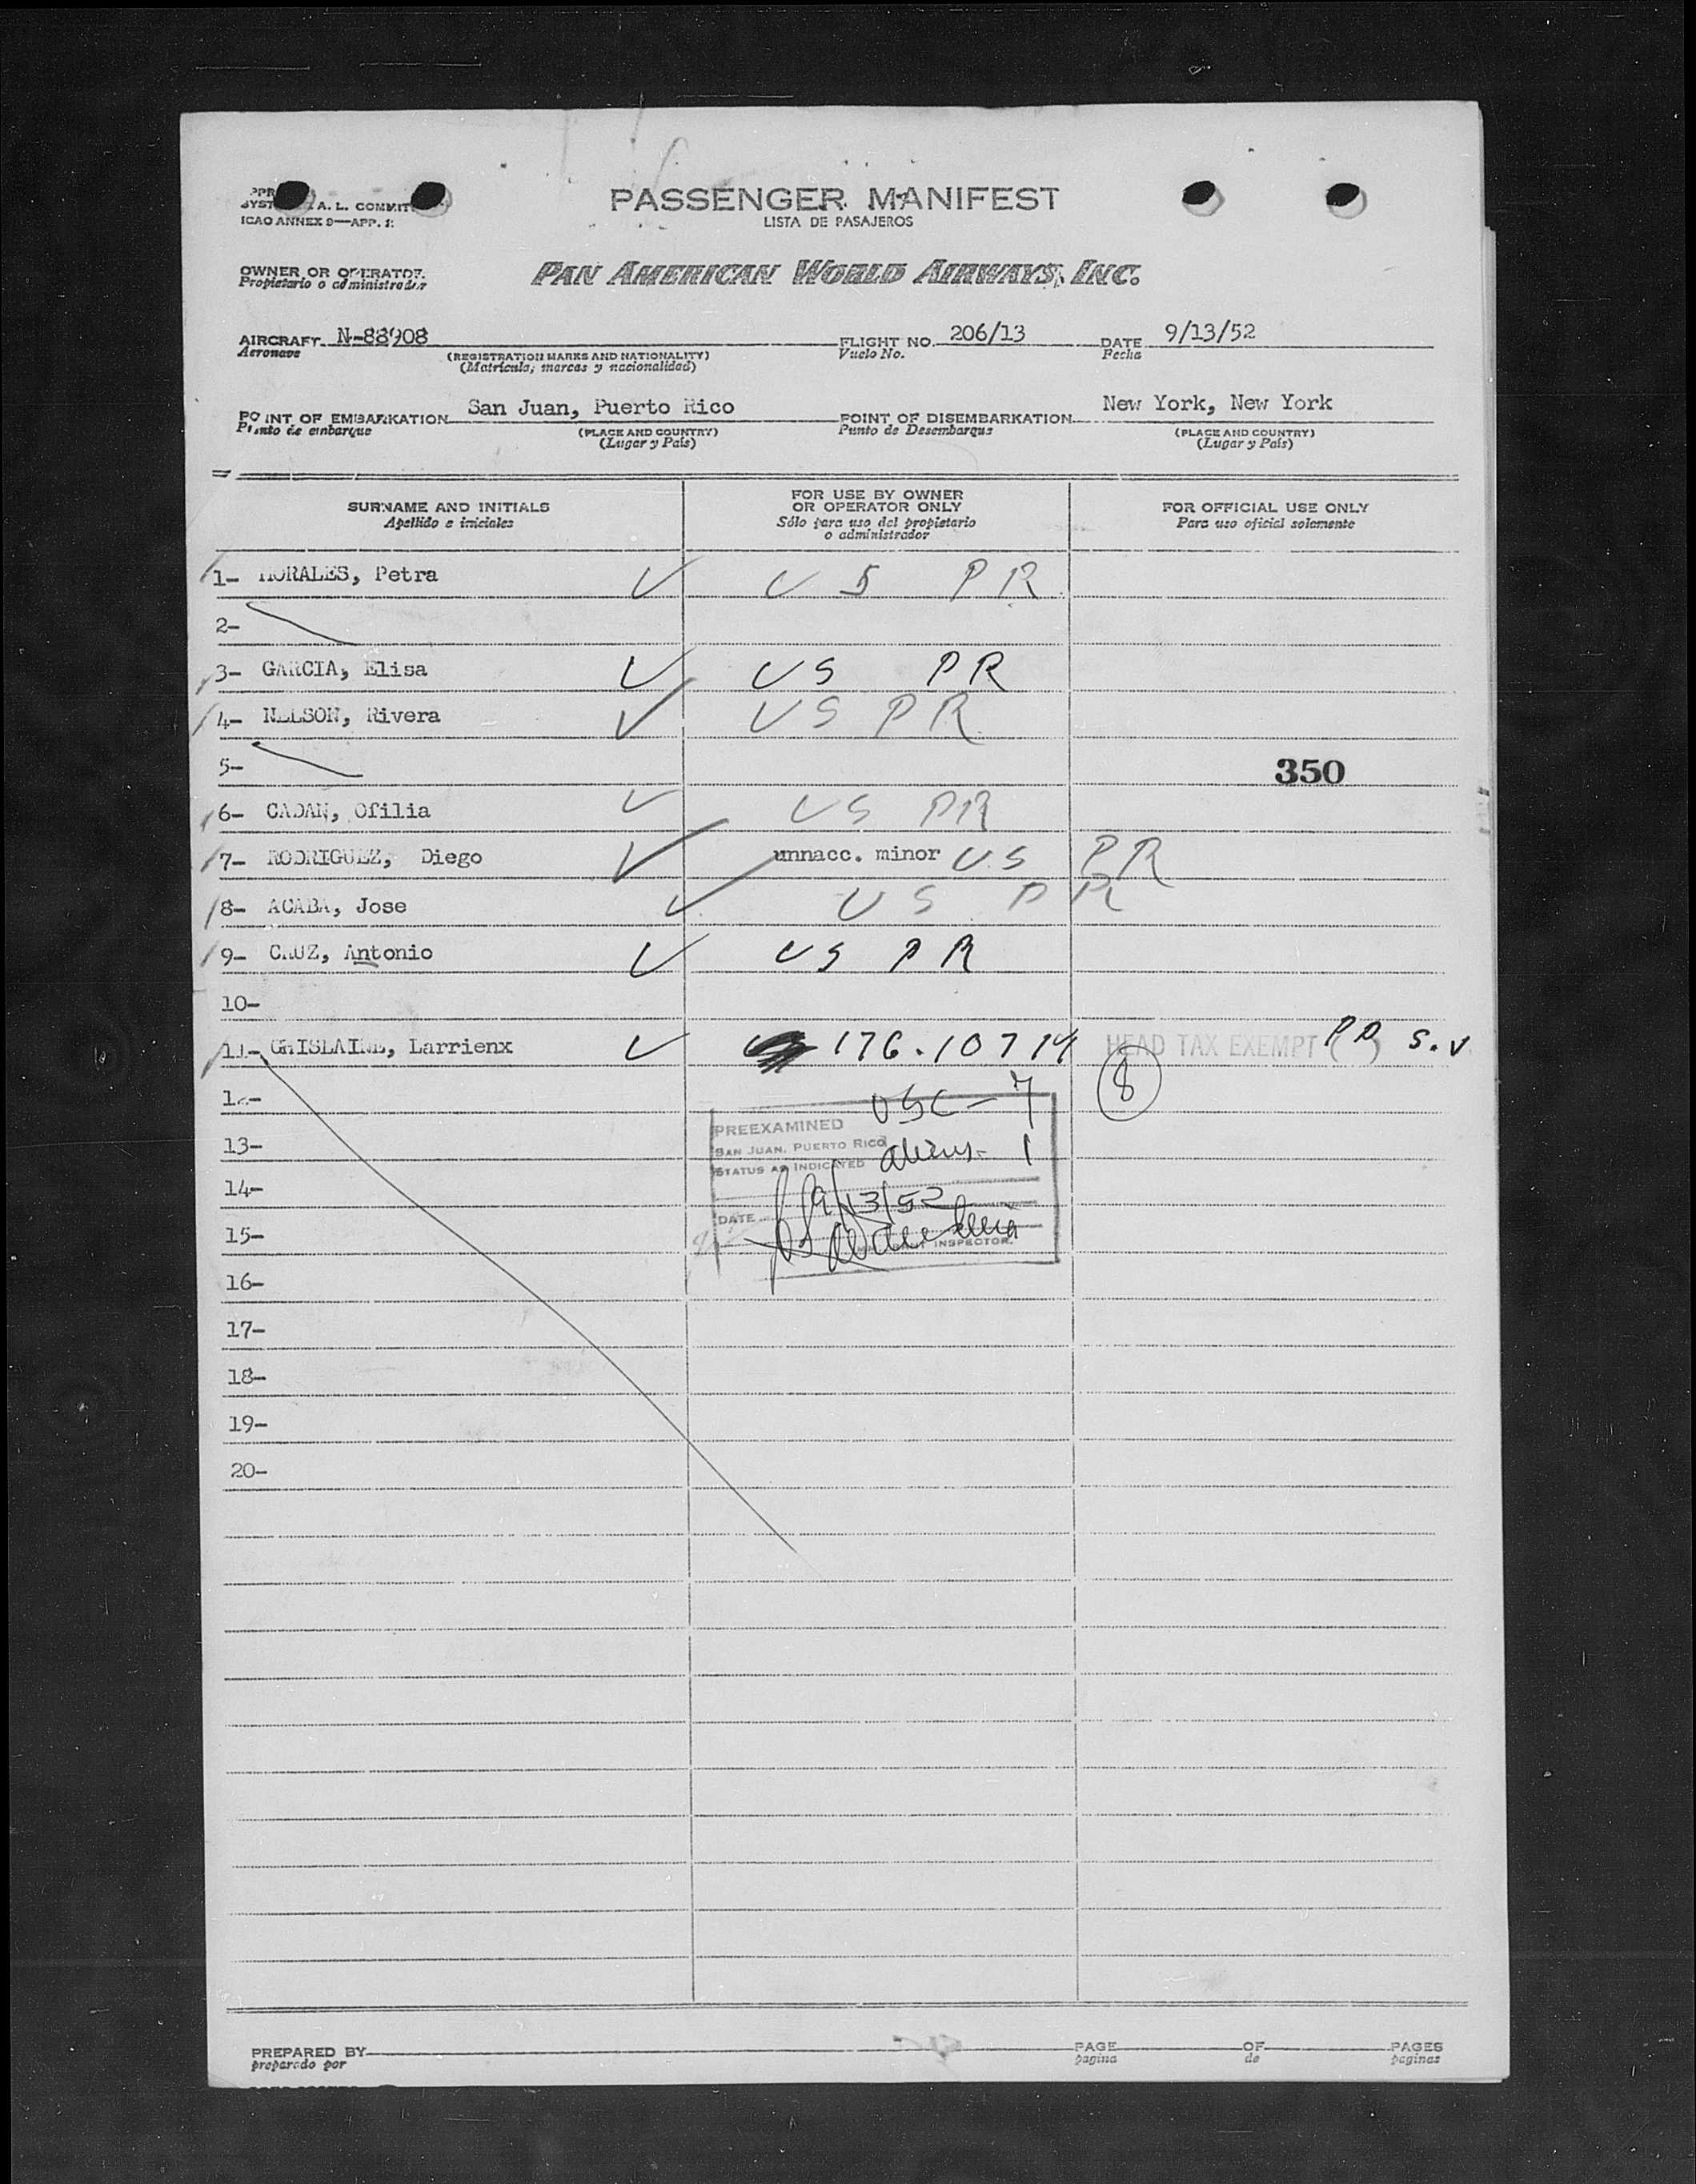 A. L. COMMIT
ICAO ANNEX 9—APP. 2
PASSENGER MANIFEST
LISTA DE PASAJEROS
OWNER OR OPERATOR
Propietario o administrador
PAN AMERICAN WORLD AIRWAYS, INC.
AIRCRAFT N-88908
Aeronave
(REGISTRATION MARKS AND NATIONALITY)
(Matricula, marcas y nacionalidad)
FLIGHT NO. 206/13
Vuelo No.
DATE 9/13/52
Fecha
POINT OF EMBARKATION San Juan, Puerto Rico
Punto de embarque
(PLACE AND COUNTRY)
(Lugar y País)
POINT OF DISEMBARKATION New York, New York
Punto de Desembarque
(PLACE AND COUNTRY)
(Lugar y País)
SURNAME AND INITIALS
Apellido e iniciales
FOR USE BY OWNER
OR OPERATOR ONLY
Sólo para uso del propietario
o administrador
FOR OFFICIAL USE ONLY
Para uso oficial solamente
1- MORALES, Petra US PR
2-
3- GARCIA, Elisa US PR
4- NELSON, Rivera US PR
5-
350
6- CADAN, Ofilia US PR
7- RODRIGUEZ, Diego unnacc. minor US PR
8- ACABA, Jose US PR
9- CRUZ, Antonio US PR
10-
11- GHISLAINE, Larrienx 176.10714 HEAD TAX EXEMPT (PR) S.V
8
12-
USC - 7
PREEXAMINED
SAN JUAN, PUERTO RICO
STATUS AS INDICATED
aliens - 1
13-
14-
DATE 9/13/52
15-
INSPECTOR.
16-
17-
18-
19-
20-
PREPARED BY
preparado por
PAGE OF PAGES
pagina de paginas